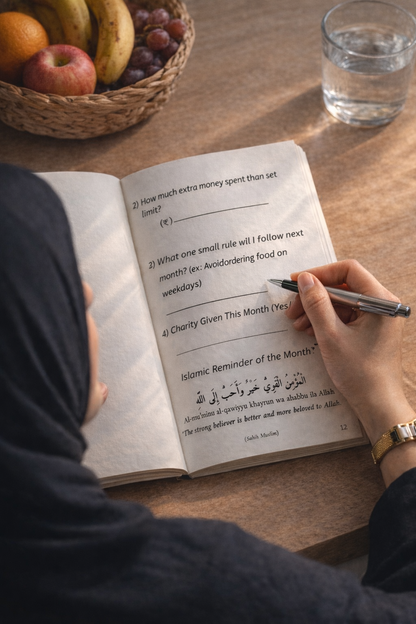 2) How much extra money spent than set
limit?
(₹)
3) What one small rule wil I follow next
month? (ex: Avoidordering food on
weekdays)
4) Charity Given This Month (Yes/
Islamic Reminder of the Month"
الْمُؤْمِنُ الْقَوِيُّ خَيْرٌ وَأَحَبُّ إِلَى اللَّهِ
Al-mu'minu al-qawiyyu khayrun wa ahabbu ila Allah
"The strong believer is better and more beloved to Allah
(Sahih Muslim)
12